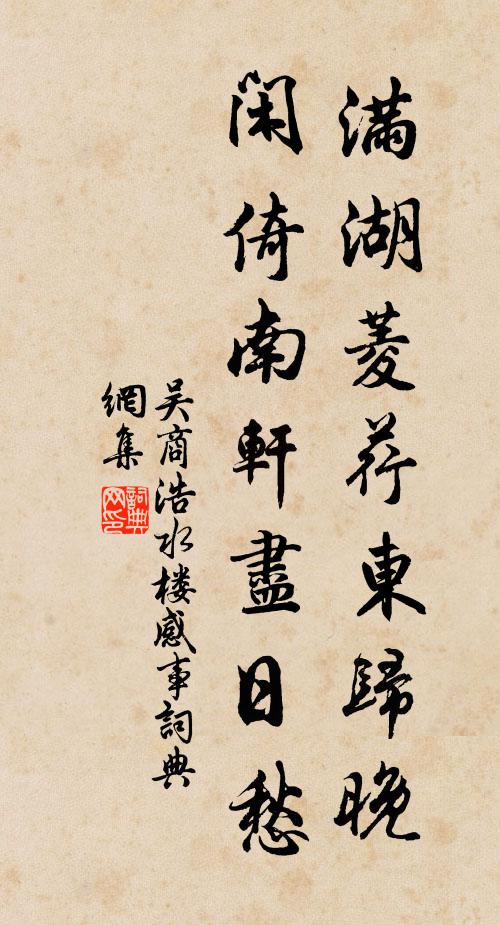 滿湖菱荇東歸晚
閑倚南軒盡日愁
吴商浩水楼感事詞典
網集
詞典网印